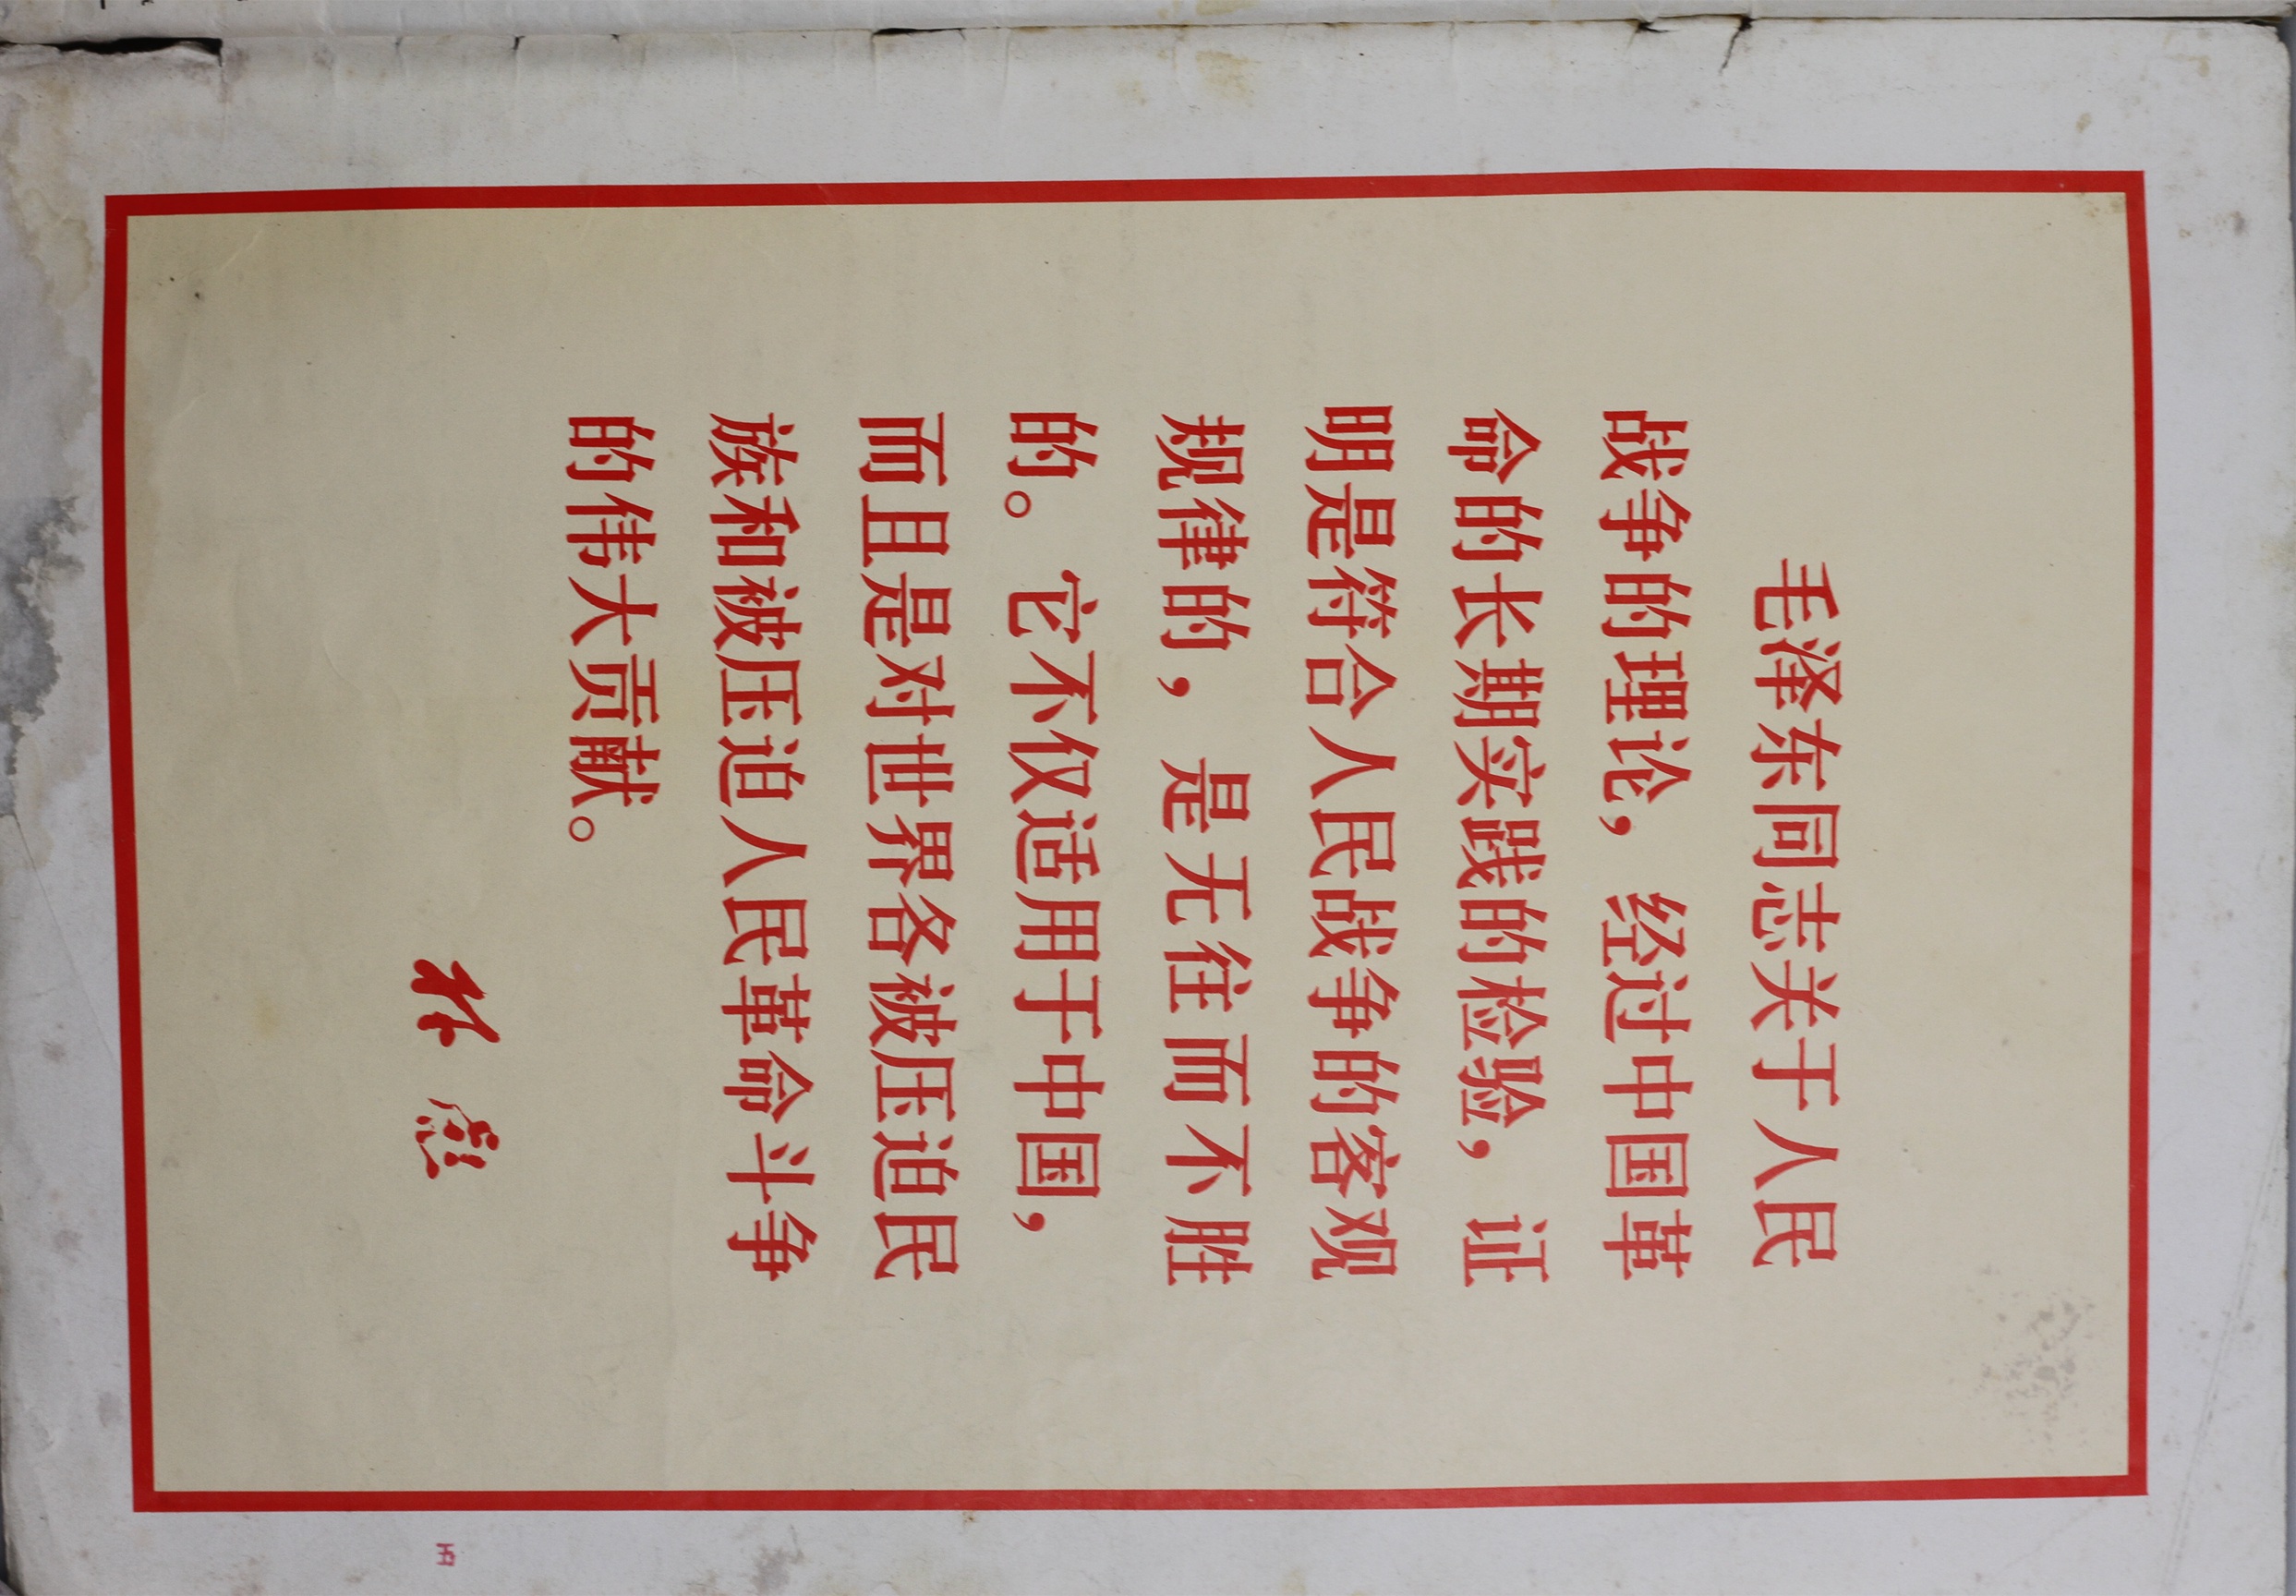 毛泽东同志关于人民
战争的理论，经过中国革
命的长期实践的检验，证
明是符合人民战争的客观
规律的，是无往而不胜
的。它不仅适用于中国，
而且是对世界各被压迫民
族和被压迫人民革命斗争
的伟大贡献。
林彪